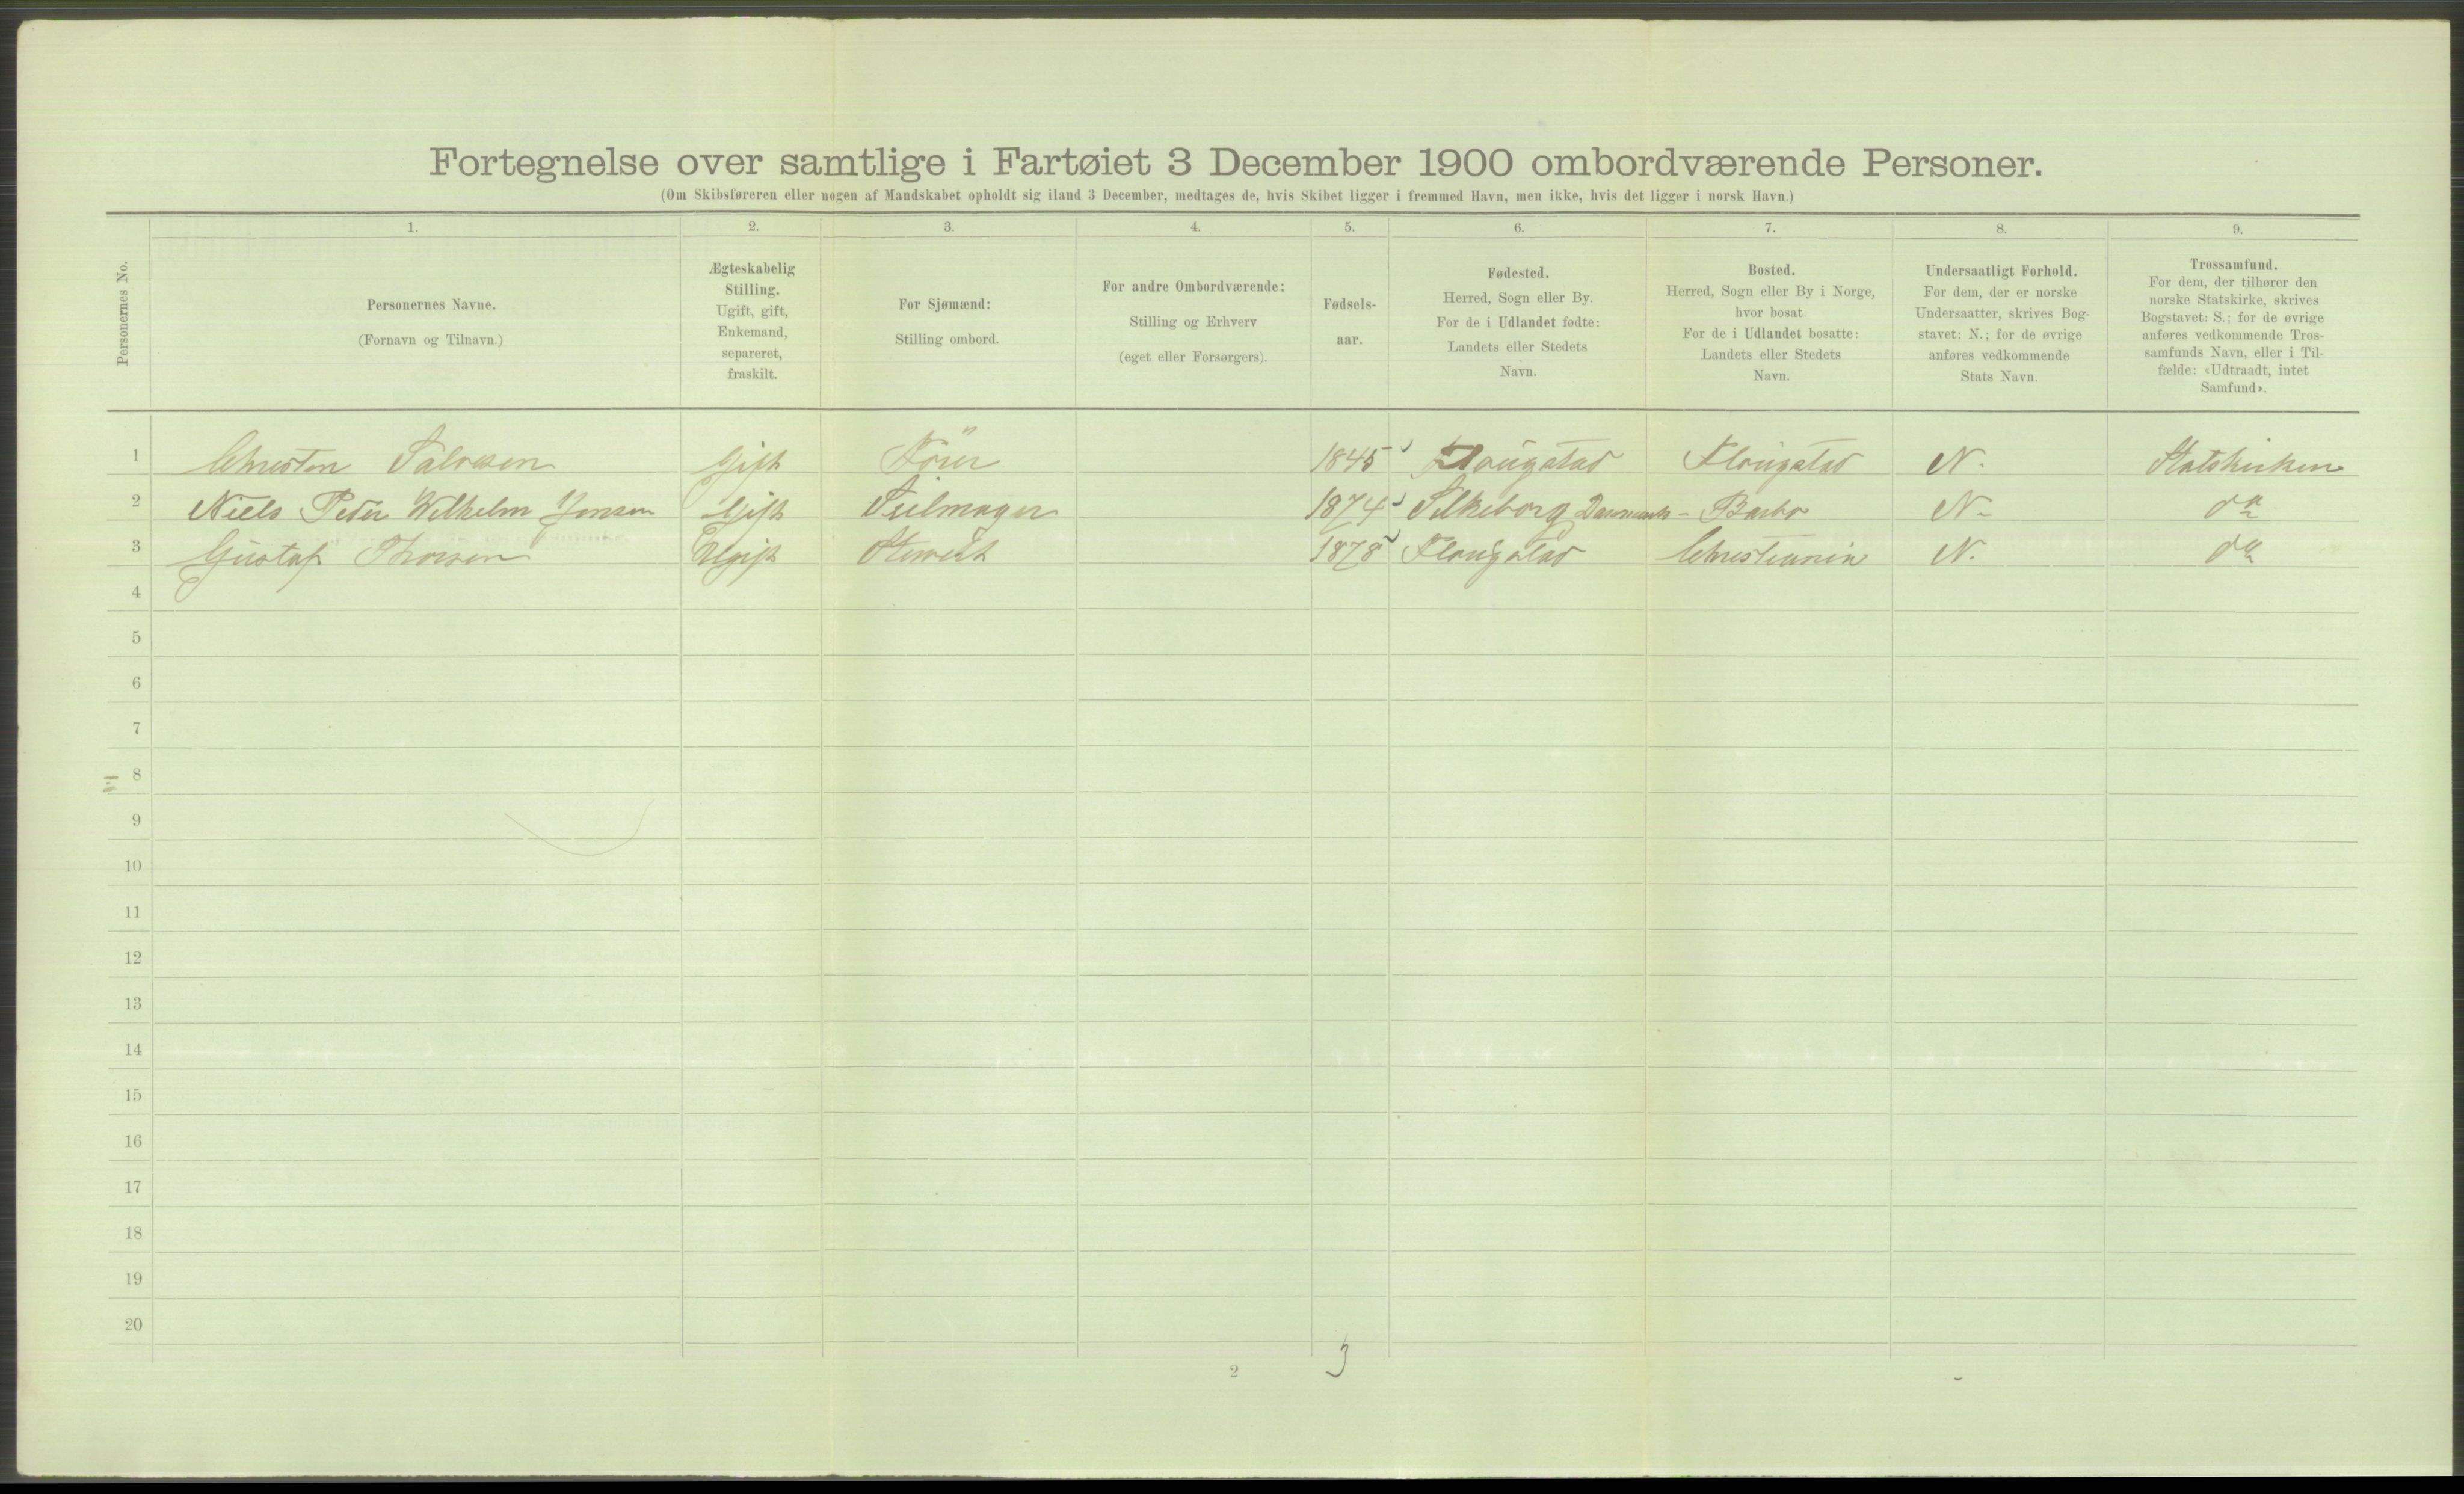 Fortegnelse over samtlige i Fartøiet 3 December 1900 ombordværende Personer.
(Om Skibsføreren eller nogen af Mandskabet opholdt sig iland 3 December, medtages de, hvis Skibet ligger i fremmed Havn, men ikke, hvis det ligger i norsk Havn.)
Personernes No.
1.
Personernes Navne.
(Fornavn og Tilnavn.)
2.
Ægteskabelig
Stilling.
Ugift, gift,
Enkemand,
separeret,
fraskilt.
3.
For Sjømænd:
Stilling ombord.
4.
For andre Ombordværende:
Stilling og Erhverv
(eget eller Forsørgers).
5.
Fødsels-
aar.
6.
Fødested.
Herred, Sogn eller By.
For de i Udlandet fødte:
Landets eller Stedets
Navn.
7.
Bosted.
Herred, Sogn eller By i Norge,
hvor bosat.
For de i Udlandet bosatte:
Landets eller Stedets
Navn.
8.
Undersaatligt Forhold.
For dem, der er norske
Undersaatter, skrives Bog-
stavet: N.; for de øvrige
anføres vedkommende
Stats Navn.
9.
Trossamfund.
For dem, der tilhører den
norske Statskirke, skrives
Bogstavet: S.; for de øvrige
anføres vedkommende Tros-
samfunds Navn, eller i Til-
fælde: «Udtraadt, intet
Samfund».
1 Christen Salvesen Gift Förer 1845 Flougstad Flougstad N. Statskirken
2 Niels Peder Wilhelm Jensen Gift Seilmager 1874 Silkeborg Danmark - Barbo N- do
3 Gustaf Thorsen Ugift Stewert 1878 Flougstad Christiania N. do
4
5
6
7
8
9
10
11
12
13
14
15
16
17
18
19
20
2
3